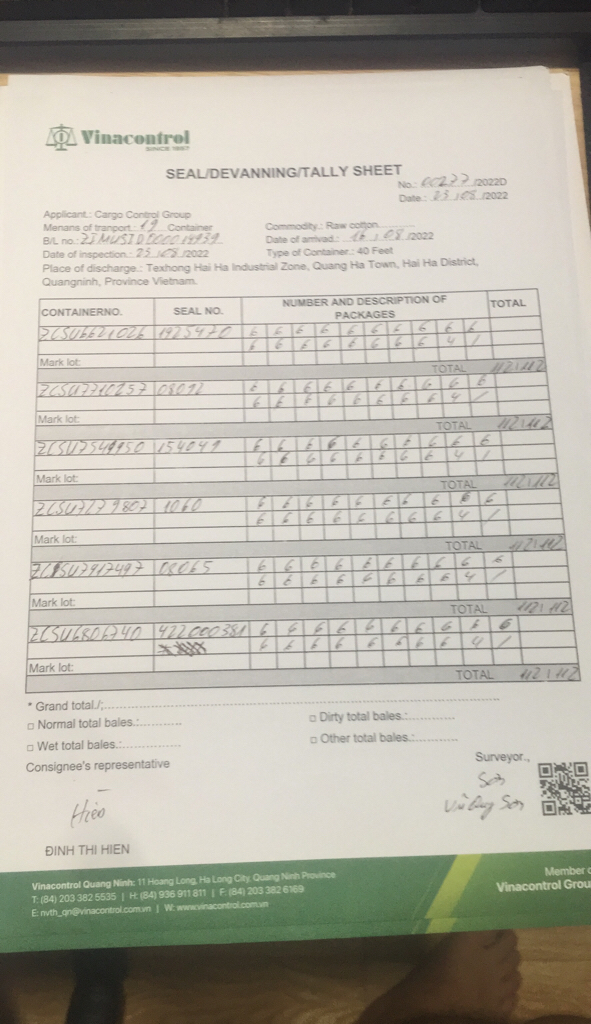 Vinacontrol
SINCE 1957
SEAL/DEVANNING/TALLY SHEET
No.: 00277 /2022D
Date.: 25 /08 /2022
Applicant.: Cargo Control Group
Menans of tranport.: 19 Container
Commodity.: Raw cotton
B/L no.:
Date of arrivad.: 16 / 08 /2022
Date of inspection.: 25 /08 /2022
Type of Container.: 40 Feet
Place of discharge.: Texhong Hai Ha Industrial Zone, Quang Ha Town, Hai Ha District,
Quangninh, Province Vietnam.
CONTAINERNO. SEAL NO. NUMBER AND DESCRIPTION OF PACKAGES TOTAL
ZCSU6621026 1925470 6 6 6 6 6 6 6 6 6 6
6 6 6 6 6 6 6 6 4 /
Mark lot:
TOTAL 112 / 112
ZCSU7710257 08092 6 6 6 6 6 6 6 6 6 6
6 6 6 6 6 6 6 6 4 /
Mark lot:
TOTAL 112 / 112
154049 6 6 6 6 6 6 6 6 6 6
6 6 6 6 6 6 6 6 4 /
Mark lot:
TOTAL 112 / 112
ZCSU7279807 1060 6 6 6 6 6 6 6 6 6 6
6 6 6 6 6 6 6 6 4 /
Mark lot:
TOTAL 112 / 112
08065 6 6 6 6 6 6 6 6 6 6
6 6 6 6 6 6 6 6 4 /
Mark lot:
TOTAL 112 / 112
ZCSU6806740 422000381 6 6 6 6 6 6 6 6 6 6
6 6 6 6 6 6 6 6 4 /
Mark lot:
TOTAL 112 / 112
* Grand total./:
□ Normal total bales.:
□ Dirty total bales.:
□ Wet total bales.:
□ Other total bales.:
Consignee's representative
Surveyor.,
Hiền
Sơn
Vũ Sơn
ĐINH THI HIEN
Vinacontrol Quang Ninh: 11 Hoang Long, Ha Long City, Quang Ninh Province
T: (84) 203 382 5535 | H: (84) 936 911 811 | F: (84) 203 382 6169
E: nvth_qn@vinacontrol.com.vn | W: www.vinacontrol.com.vn
Member o
Vinacontrol Grou